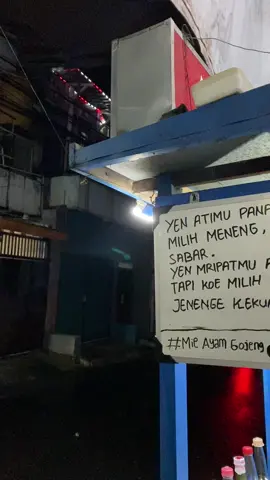 YEN ATIMU PANA
MILIH MENENG,
SABAR.
YEN MRIPATMU
TAPI KOE MILIH
JENENGE KEKUA
#Mie Ayam Gajeng